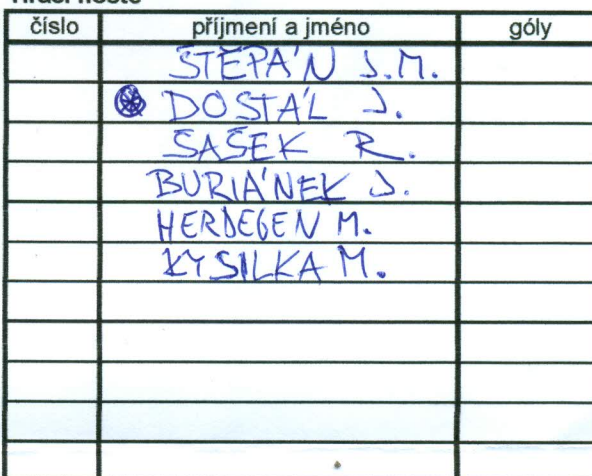 Hráči hosté
číslo příjmení a jméno góly
ŠTĚPÁN J.M.
DOSTÁL J.
SAŠEK R.
BURIÁNEK J.
HERDEGEN M.
KYSILKA M.